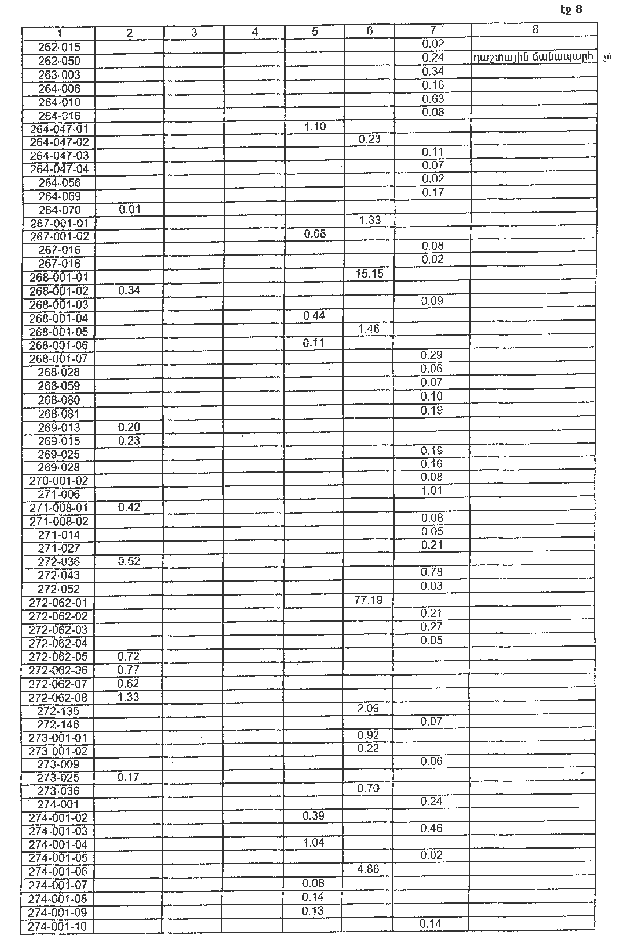 էջ 8
1 2 3 4 5 6 7 8
262-015 0.02
262-050 0.24 դաշտային ճանապարհ
263-003 0.34
264-006 0.16
264-010 0.63
264-016 0.08
264-047-01 1.10
264-047-02 0.23
264-047-03 0.11
264-047-04 0.07
264-056 0.02
264-069 0.17
264-070 0.01
267-001-01 1.33
267-001-02 0.06
267-016 0.08
267-018 0.02
268-001-01 15.15
268-001-02 0.34
268-001-03 0.09
268-001-04 0.44
268-001-05 1.46
268-001-06 0.11
268-001-07 0.29
268-028 0.06
268-059 0.07
268-080 0.10
268-081 0.19
269-013 0.20
269-015 0.23
269-025 0.19
269-028 0.16
270-001-02 0.08
271-006 1.01
271-008-01 0.42
271-008-02 0.08
271-014 0.05
271-027 0.21
272-036 0.52
272-043 0.78
272-052 0.03
272-062-01 77.19
272-062-02 0.21
272-062-03 0.27
272-062-04 0.05
272-062-05 0.72
272-062-06 0.77
272-062-07 0.62
272-062-08 1.33
272-135 2.09
272-148 0.07
273-001-01 0.92
273-001-02 0.22
273-009 0.06
273-025 0.17
273-036 0.70
274-001 0.24
274-001-02 0.39
274-001-03 0.46
274-001-04 1.04
274-001-05 0.02
274-001-06 4.86
274-001-07 0.08
274-001-08 0.14
274-001-09 0.13
274-001-10 0.14